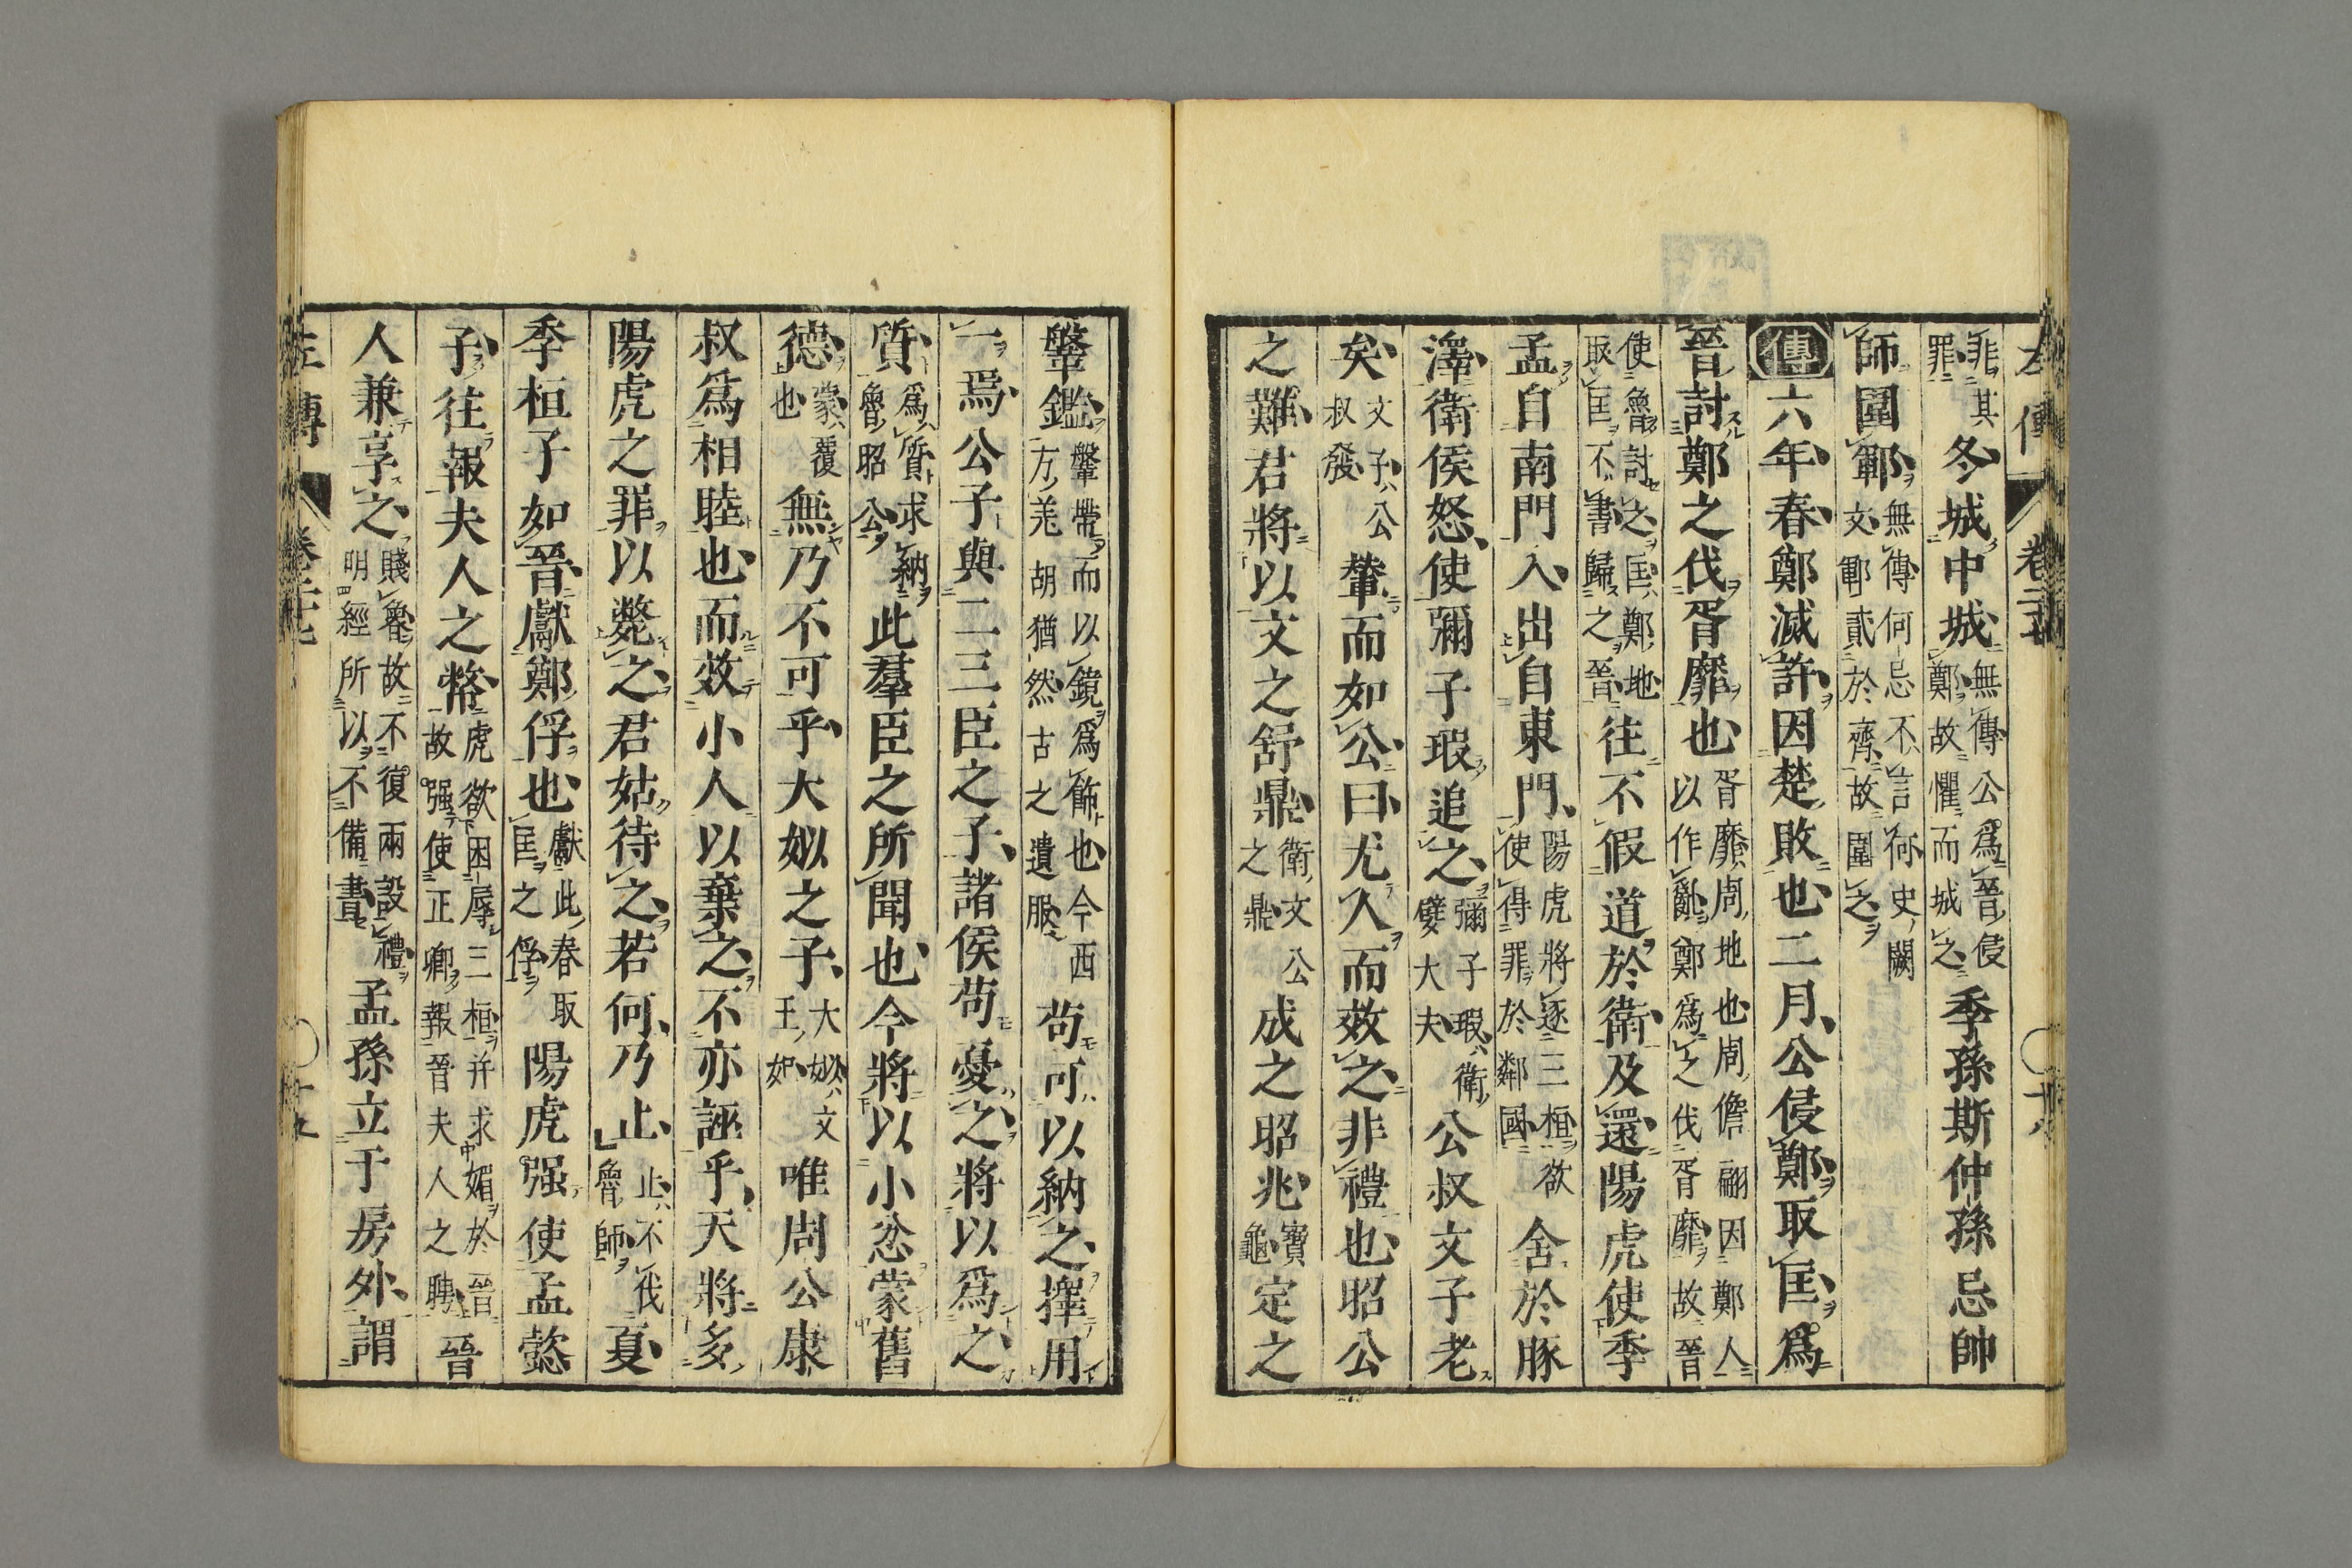 左傳 卷二十七 十八
非其罪冬城中城無傳公爲晉侵鄭故懼而城之季孫斯仲孫忌帥
師圍鄆無傳何忌不言何史闕文鄆貳於齊故圍之
傳六年春鄭滅許因楚敗也二月公侵鄭取匡爲
晉討鄭之伐胥靡也胥靡周地也周儋翩因鄭人以作亂鄭爲之伐胥靡故晉
使魯討之匡鄭地取匡不書歸之晉往不假道於衛及還陽虎使季
孟自南門入出自東門陽虎將逐三桓欲使得罪於鄰國舍於豚
澤衛侯怒使彌子瑕追之彌子瑕衛嬖大夫公叔文子老
矣文子公叔發輦而如公曰尤人而效之非禮也昭公
之難君將以文之舒鼎衛文公之鼎成之昭兆寶龜定之
鞶鑑鞶帶而以鏡爲飾也今西方羌胡猶然古之遺服苟可以納之擇用
一焉公子與二三臣之子諸侯苟憂之將以爲之
質爲質求納魯昭公此羣臣之所聞也今將以小忿蒙舊
德蒙覆也無乃不可乎大姒之子大姒文王妃唯周公康
叔爲相睦也而效小人以棄之不亦誣乎天將多
陽虎之罪以斃之君姑待之若何乃止止不伐魯師夏
季桓子如晉獻鄭俘也獻此春取匡之俘陽虎强使孟懿
子往報夫人之幣虎欲困辱三桓并求媚於晉故强使正卿報晉夫人之聘晉
人兼享之賤魯故不復兩設禮明經所以不備書孟孫立于房外謂
左傳 卷二十七 十九